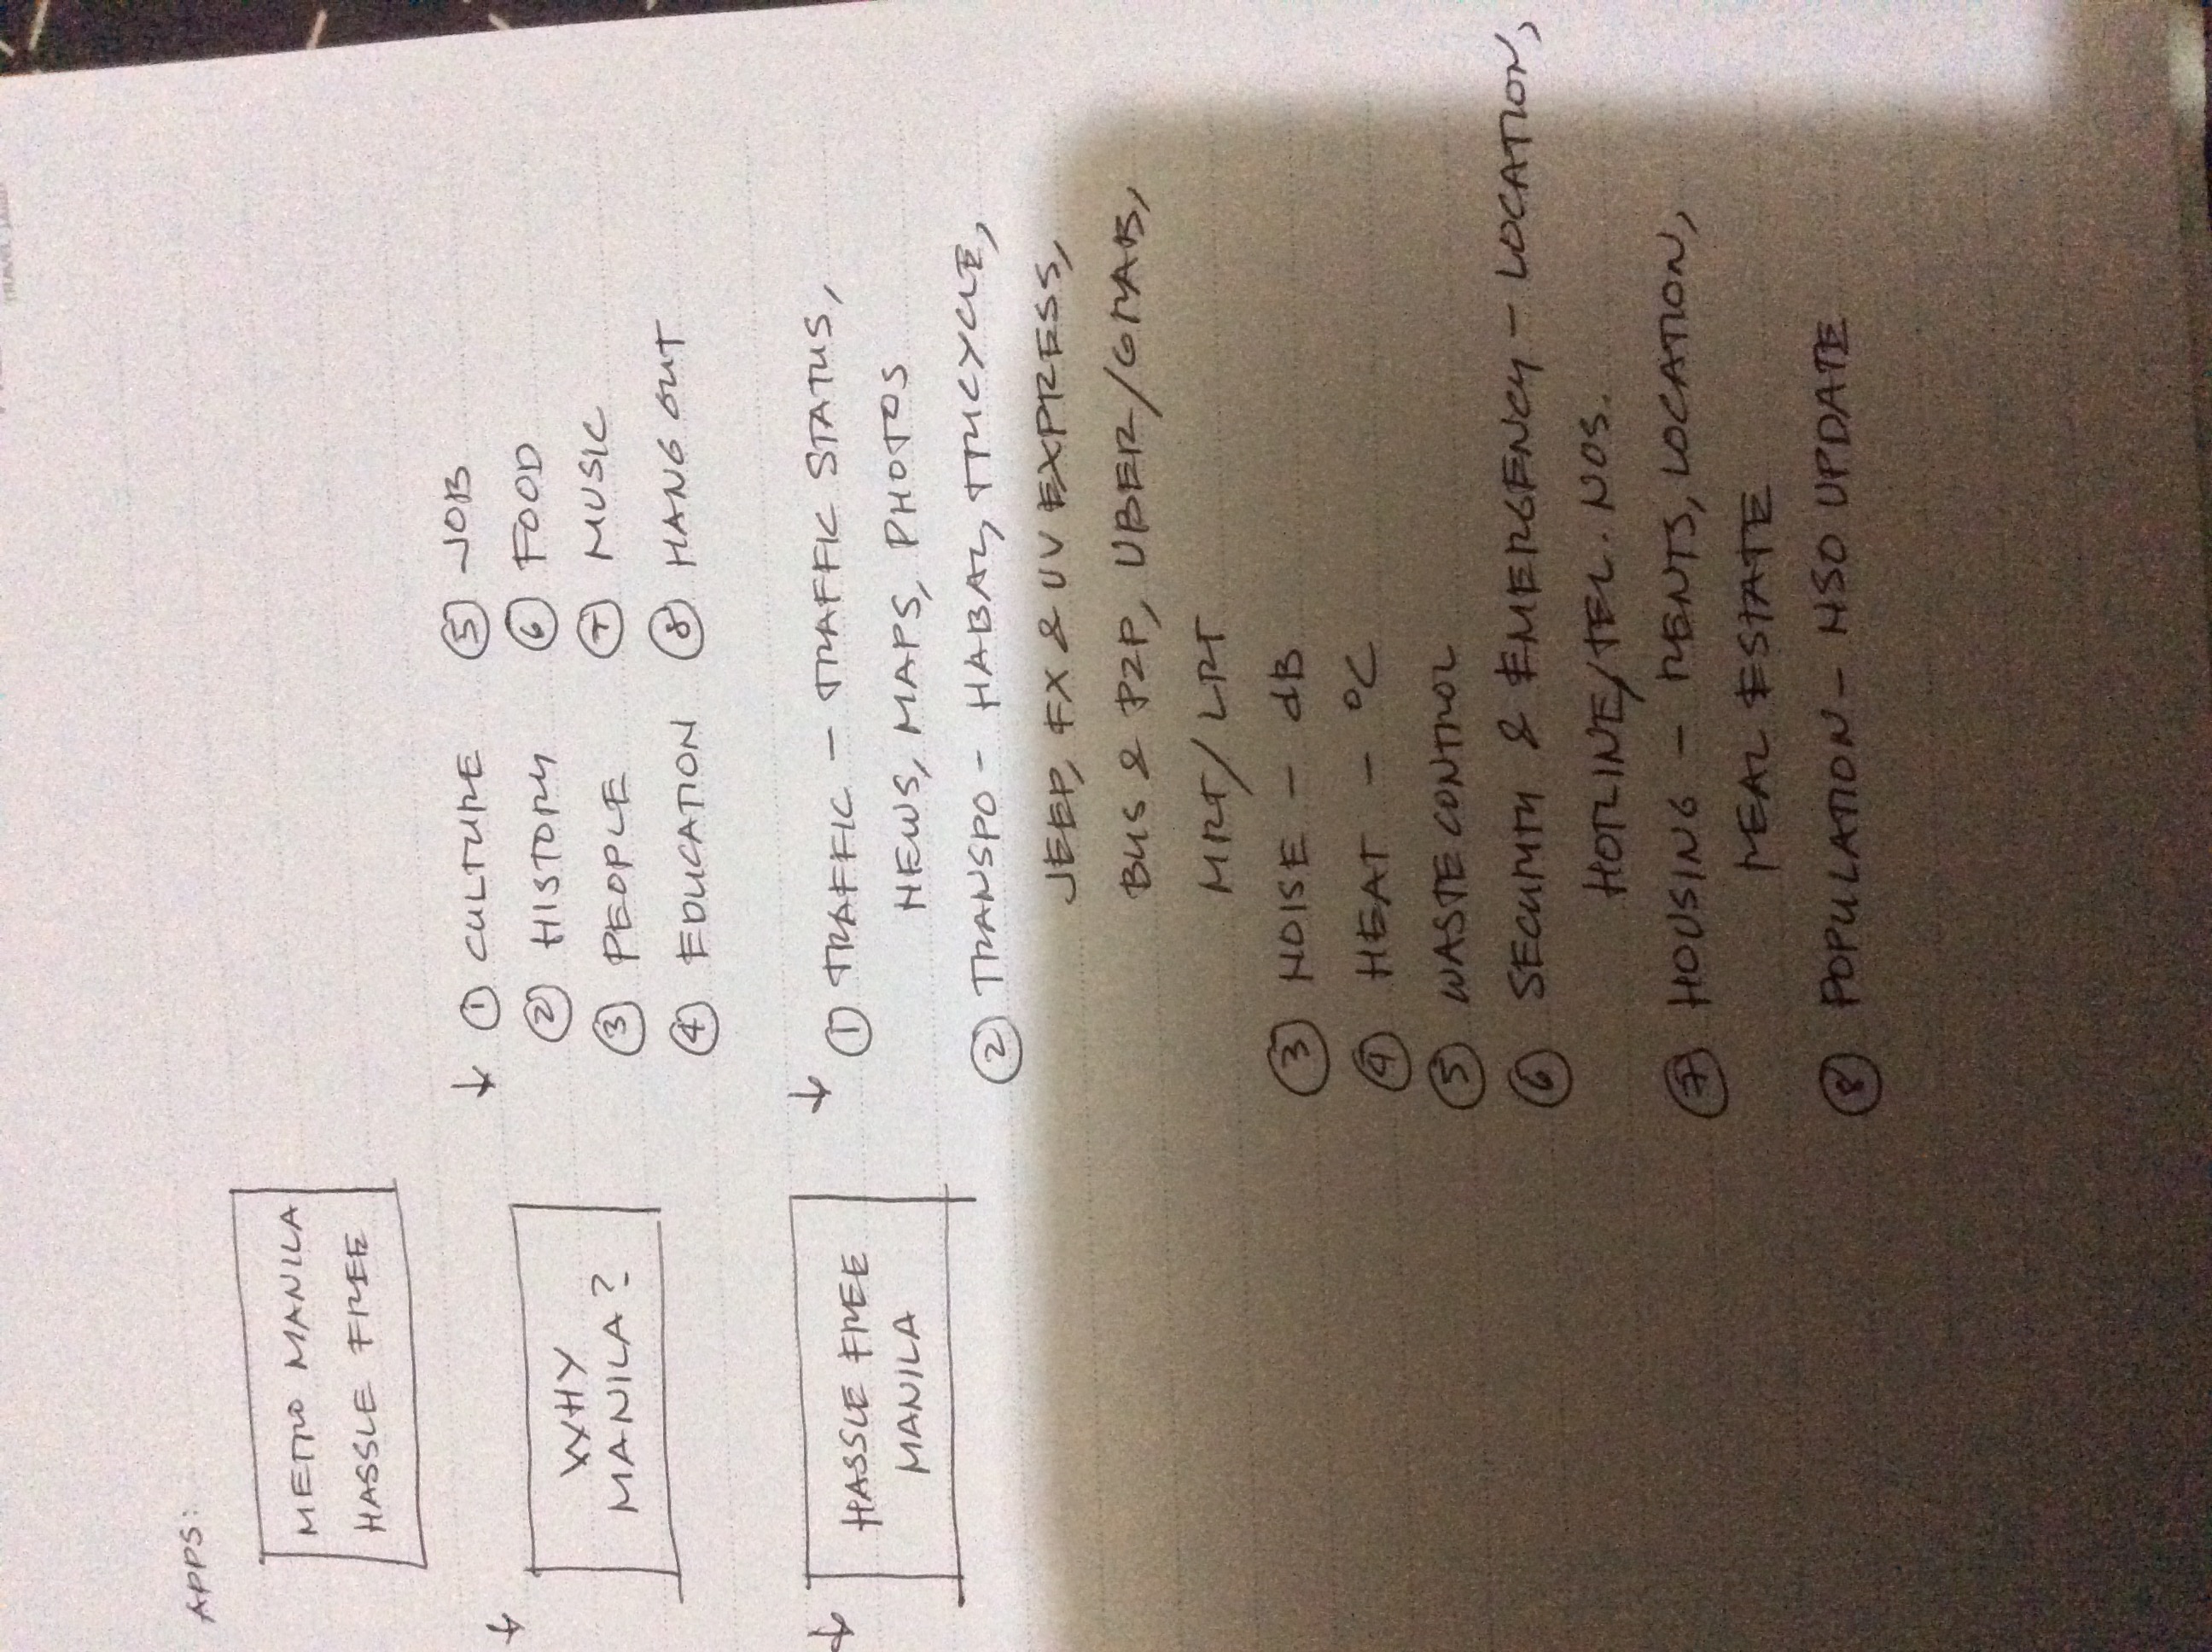 APPS:
METRO MANILA
HASSLE FREE
↓ WHY
MANILA?
↓ ① CULTURE ⑤ JOB
② HISTORY ⑥ FOOD
③ PEOPLE ⑦ MUSIC
④ EDUCATION ⑧ HANG OUT
↓ HASSLE FREE
MANILA
↓ ① TRAFFIC - TRAFFIC STATUS,
NEWS, MAPS, PHOTOS
② TRANSPO - HABAL, TRICYCLE,
JEEP, FX & UV EXPRESS,
BUS & P2P, UBER/GRAB,
MRT/LRT
③ NOISE - dB
④ HEAT - °C
⑤ WASTE CONTROL
⑥ SECURITY & EMERGENCY - LOCATION,
HOTLINE/TEL. NOS.
⑦ HOUSING - RENTS, LOCATION,
REAL ESTATE
⑧ POPULATION - NSO UPDATE